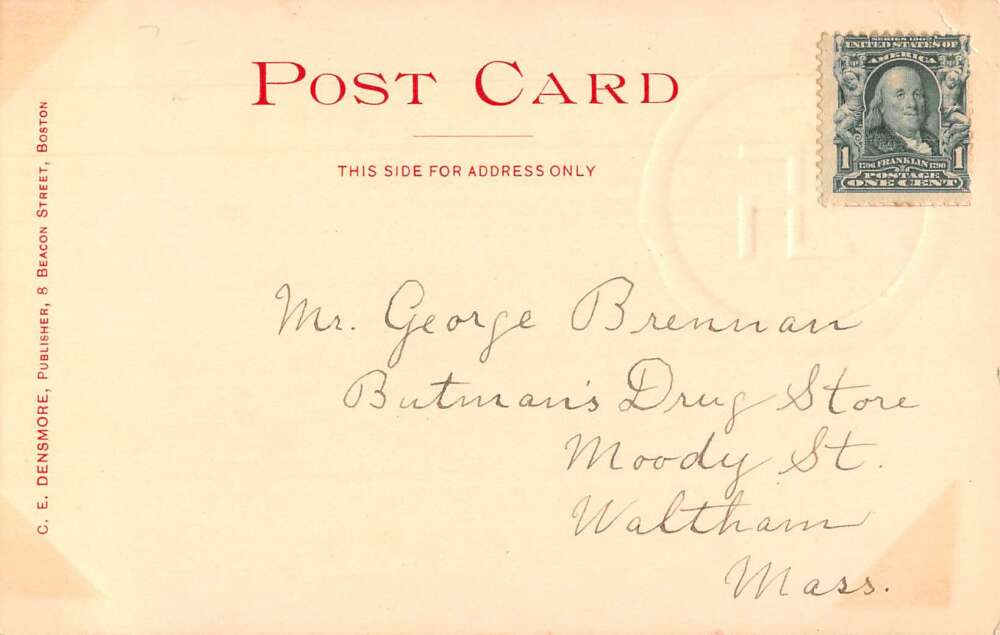 POST CARD
THIS SIDE FOR ADDRESS ONLY
C. E. DENSMORE, PUBLISHER, 8 BEACON STREET, BOSTON
SERIES 1902
UNITED STATES OF
AMERICA
1 1
1706 FRANKLIN 1790
POSTAGE
ONE CENT
H
Mr. George Brennan
Butman's Drug Store
Moody St.
Waltham
Mass.